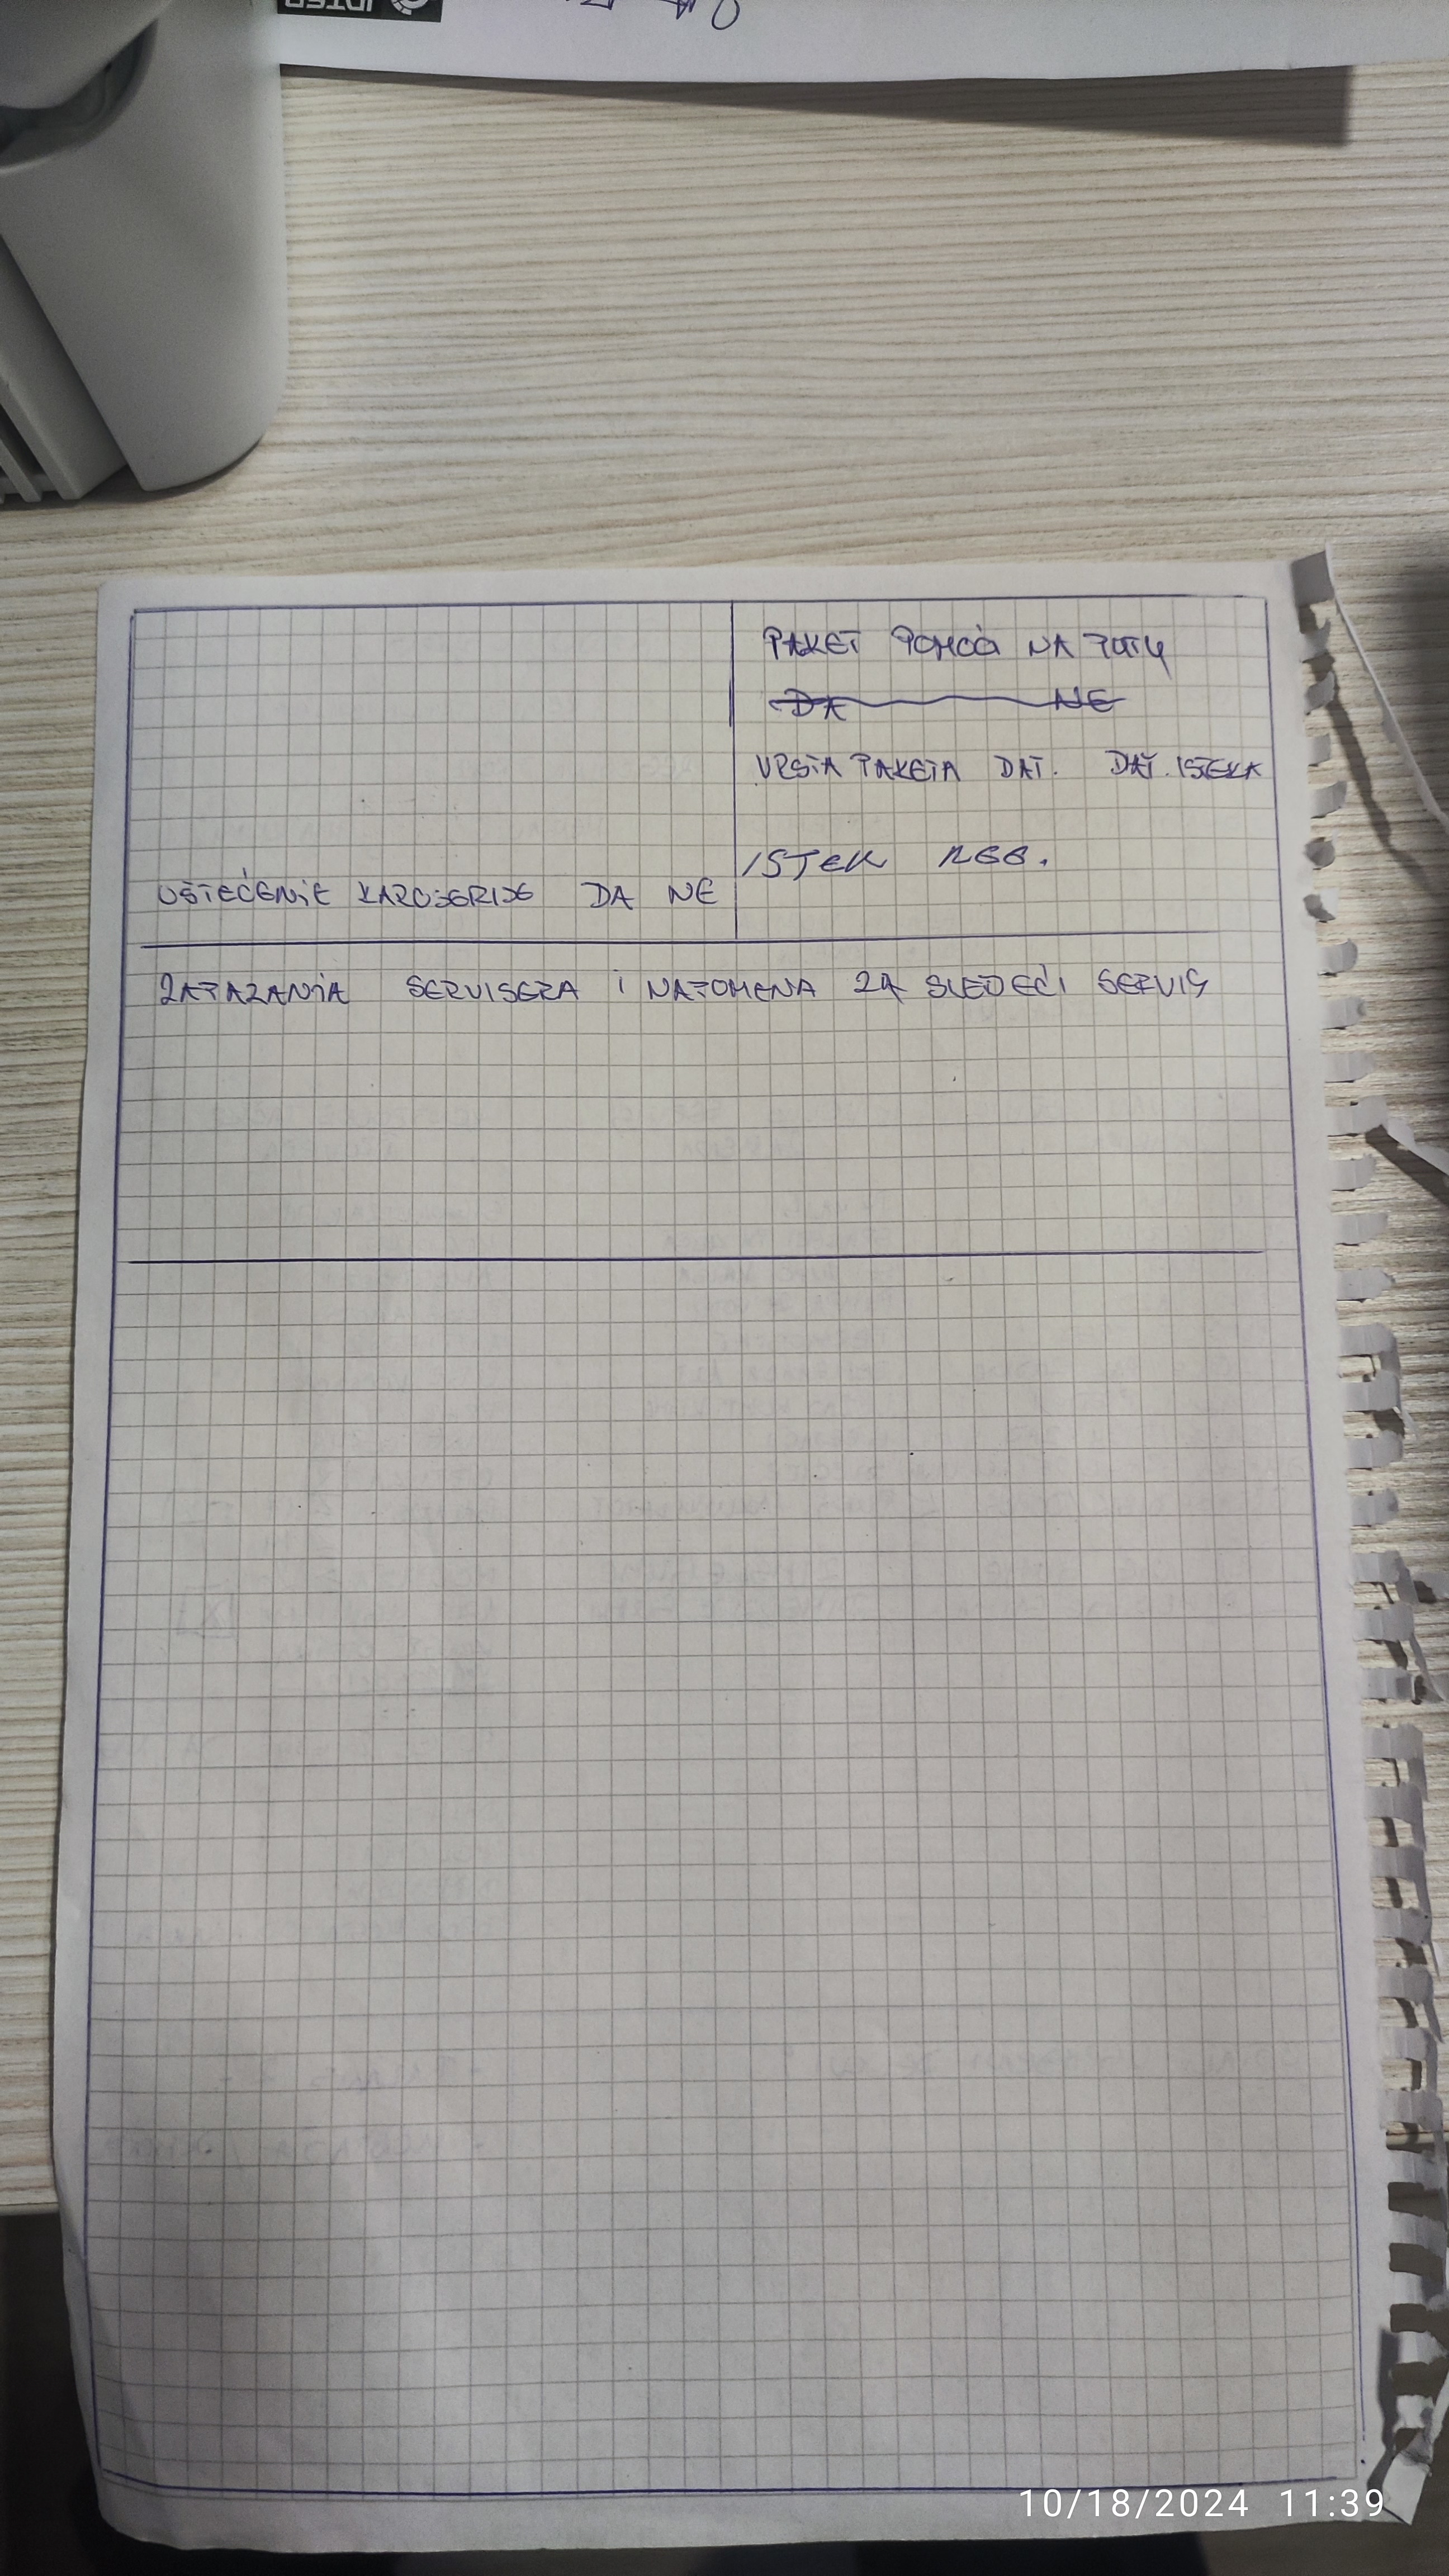 PAKET POMOĆI NA PUTU
DA NE
VRSTA PAKETA DAT. DAT. ISTEKA
ISTEK REG.
OŠTEĆENJE KAROSERIJE DA NE
ZAPAŽANJA SERVISERA I NAPOMENA ZA SLEDEĆI SERVIS
10/18/2024 11:39